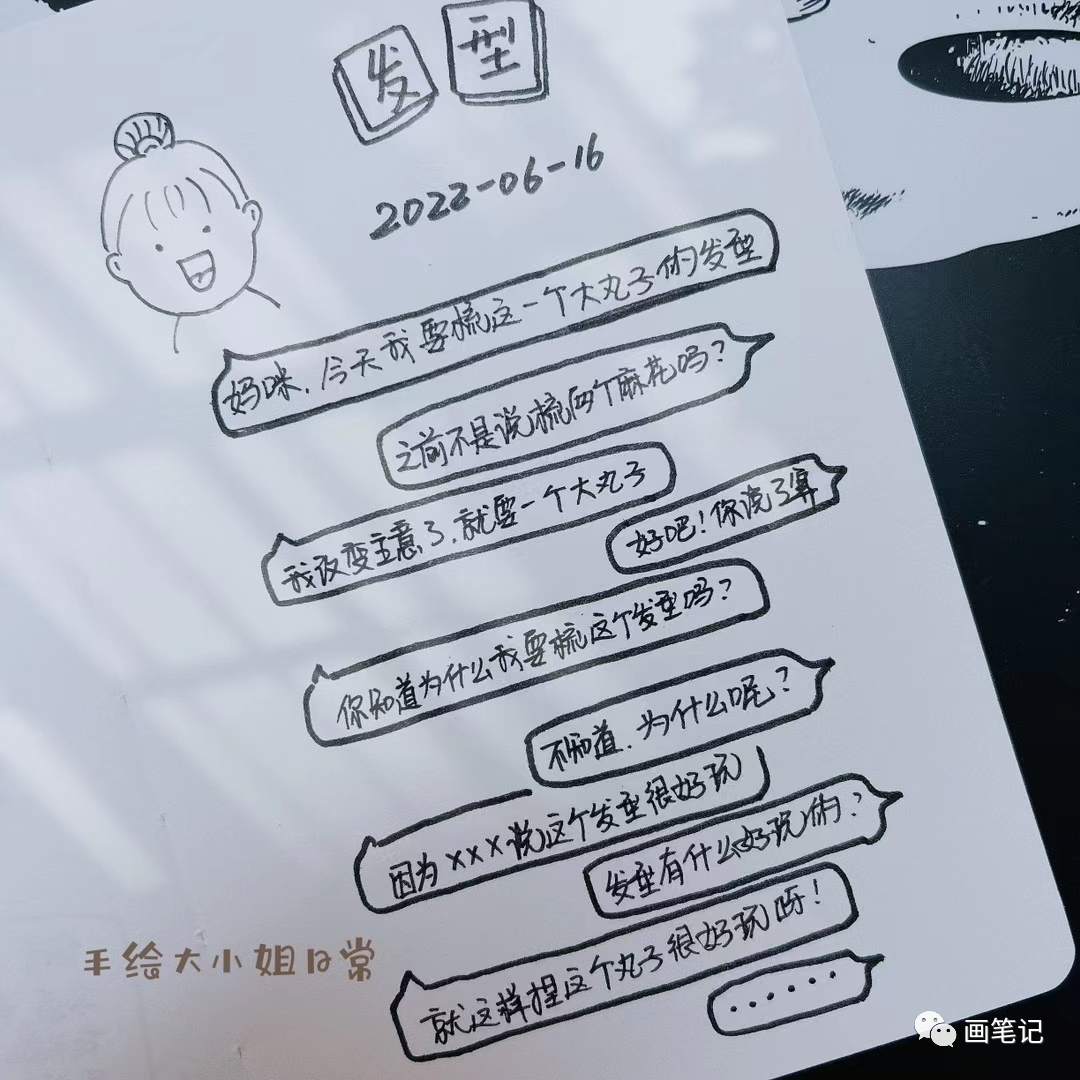 发型
2022-06-16
妈咪,今天我要梳这一个大丸子的发型
之前不是说梳两个麻花吗?
我改变主意了,就要一个大丸子
好吧!你说了算
你知道为什么我要梳这个发型吗?
不知道,为什么呢?
因为xxx说这个发型很好玩
发型有什么好玩的?
就这样捏这个丸子很好玩呀!
······
手绘大小姐日常
画笔记